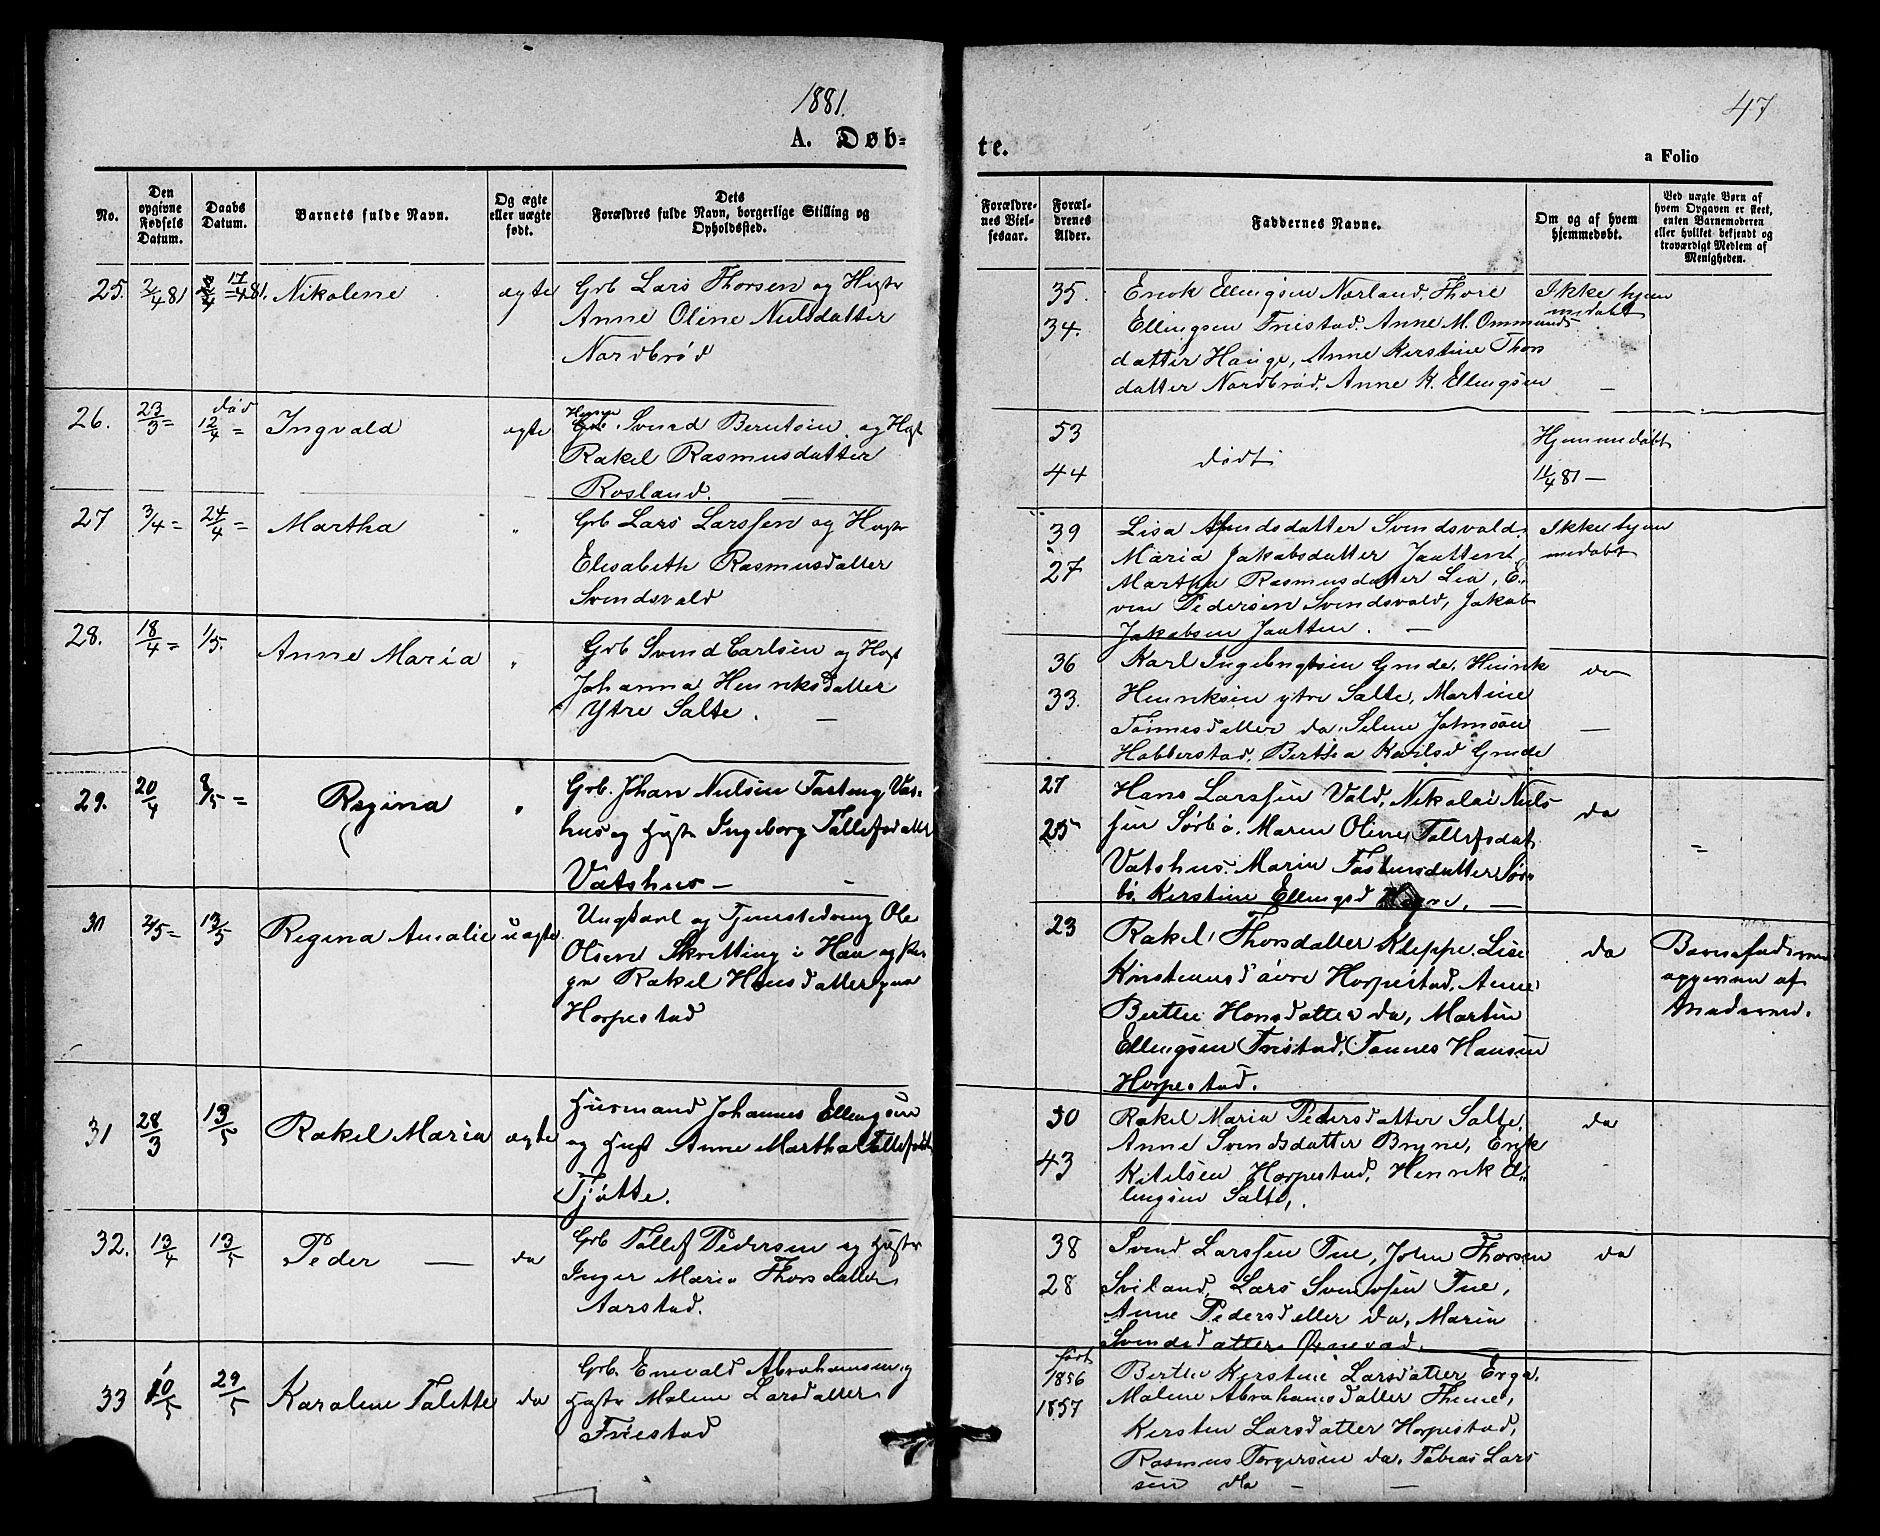 1881.
47
A. Døb-
te.
a Folio
No.
Den opgivne Fødsels Datum.
Daabs Datum.
Barnets fulde Navn.
Og ægte eller uægte født.
Dets Forældres fulde Navn, borgerlige Stilling og Opholdssted.
Forældrenes Vielsesaar.
Forældrenes Alder.
Faddernes Navne.
Om og af hvem hjemmedøbt.
Ved uægte Børn af hvem Opgaven er skeet, enten Barnemoderen eller hvilket bekjendt og troværdigt Medlem af Menigheden.
25. 2/4 81 17/4 81. Nikolene ægte Grb Lars Thorsen og Hustr
Anne Oline Nielsdatter
Nordbrød
35.
34.
Enok Ellingsen Nærland, Thore
Ellingsen Friestad. Anne M. Ommunds
datter Hauge, Anne Kirstine Thors
datter Nordbrød. Anne K. Ellingsen
Ikke hjem
medøbt
26. 23/3 = død 12/4 = Ingvald ægte Svend Berntsen og Hust
Rakel Rasmusdatter
Rosland.
53
44
dødt
Hjemmedøbt
11/4 81 —
27 3/4 = 24/4 = Martha " Grb Lars Larssen og Hustr
Elisabeth Rasmusdatter
Svendsvald
39
27
Lisa datter Svendsvald.
Maria Jakobsdatter Jaatten
Martha Rasmusdatter Lea, E
ven Pedersen Svendsvold, Jakob
Jakobsen Jaatten. —
Ikke hjem
medøbt
28. 18/4 = 1/5. Anne Maria " Grb Svend Carlsen og Hust
Johanna Henriksdatter
Ytre Salte. —
36
33.
Karl Ingebrigtsen Grude, Henrik
Henriksen ytre Salte, Martine
Tønnesdatter do, Seline Johnsøn
Hobberstad, Berthea Karlsd Grude
do
—
29. 20/4 8/5 = Regina " Grb. Johan Nielsen Fasteng Vas-
hus og Hustr Ingeborg Tollefsdatter
Vatshus —
27
25
Hans Larssen Vold, Nikolai Niels
sen Sørbø. Maren Oline Tollefsdat
Vatshus. Maria Fastensdatter Sør
bø. Kirstine Ellingsd
do
=
30 2/5 = 13/5 Regina Amalie uægte Ungkarl og Tjenestedreng Ole
Olsen Skretting i Haa og Pi
ge Rakel Hansdatter paa
Horpestad
23
Rakel Thorsdatter Kleppe, Lise
Kirsteensdatter Horpestad, Anne
Berthe Hansdatter do, Martin
Ellingsen Friestad, Tønnes Hansen
Horpestad.
do
Barnefaderen
opgiven af
Moderen.
31 28/3 13/5 Rakel Maria ægte Husmand Johannes Ellingsen
og Hust Anne Martha Tollefsdt
Tjøtte.
50
43
Rakel Maria Pedersdatter Salte,
Anne Svendsdatter Bryne, Erik
Kitilsen Horpestad, Henrik El
lingsen Salte,.
do
32. 13/4 13/5 Peder — do Grb Tollef Pedersen og Hustr
Inger Maria Thorsdatter
Aarstad.
38
28
Svend Larssen Tue, John Thorsen
Sviland, Lars Svendsen Tue,
Anne Pedersdatter do, Maria
Svendsdatter Ørnevad.
do
33 10/5 29/5 Karolene Talette do Grb. Enevald Abrahamsen og
Hustr Malene Larsdatter
Friestad
født
1856
1857
Berthe Kirstine Larsdatter Erga,
Malene Abrahamsdatter Thime,
Kersten Larsdatter Horpestad,
Rasmus Torgersen do. Tobias Lars
sen do — —